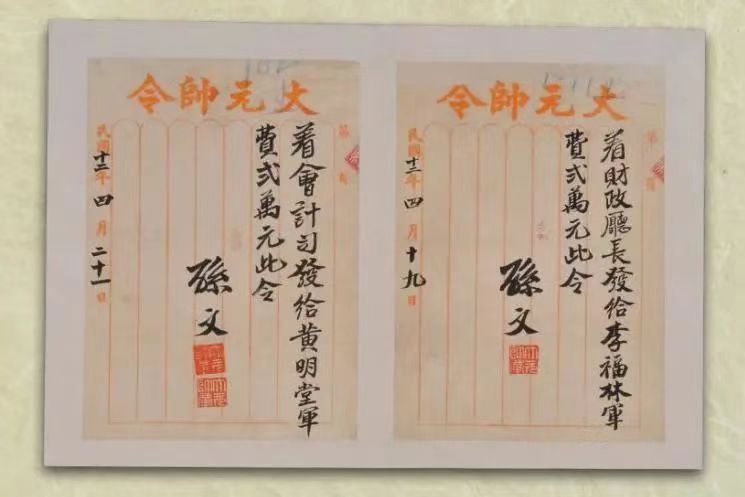 大元帥令
第
着財政廳長發給李福林軍
費弍萬元此令
孫文
民國十二年四月十九日
大元帥令
第
着會計司發給黃明堂軍
費弍萬元此令
孫文
民國十二年四月二十一日